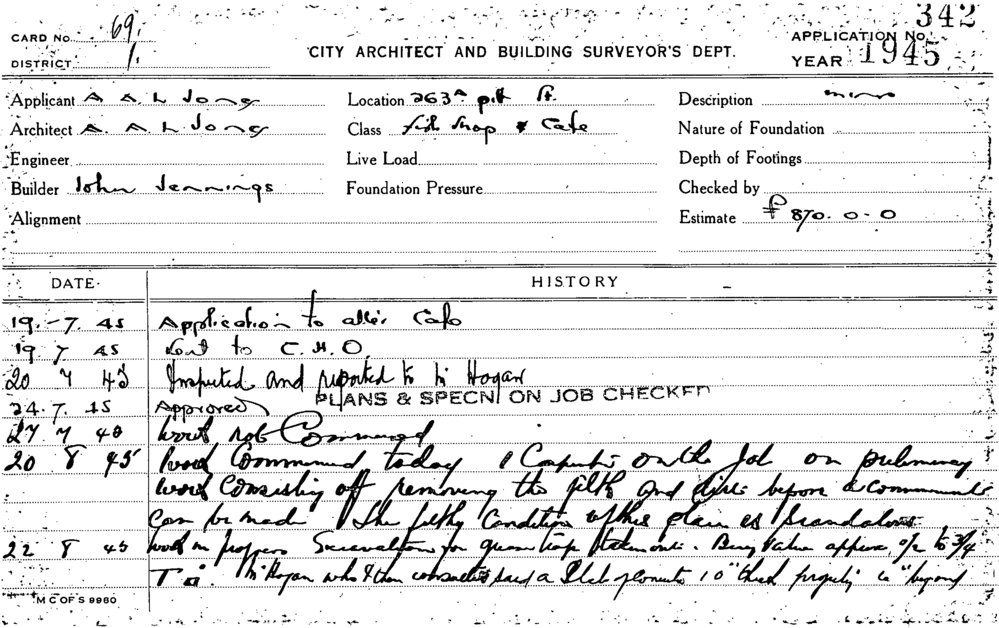 342
CARD No. 69/1.
APPLICATION No.
CITY ARCHITECT AND BUILDING SURVEYOR'S DEPT.
DISTRICT
YEAR 1945
Applicant A A L Jong Location 263A pitt St. Description minor
Architect A. A L Jong Class fish shop & Cafe Nature of Foundation
Engineer Live Load Depth of Footings
Builder John Jennings Foundation Pressure Checked by
Alignment Estimate £ 870. 0. 0
DATE. HISTORY
19.-7. 45 Application to alter Cafe
19 7 45 Sent to C.H.O.
20 7 45 Inspected and reported to Mr Hogan
PLANS & SPECN ON JOB CHECKED
24.7. 45 Approved
27 7 45 Work not Commenced
20 8 45 Work Commenced today 1 Carpenter on the Job on preliminary
work Consisting of removing the filth and dirt before a commencement
Can be made The filthy Condition of this place is scandalous
22 8 45 work in progress Excavation for grease trap
Mr Hogan who said a Slab of Concrete 10" thick
M C OF S 9980